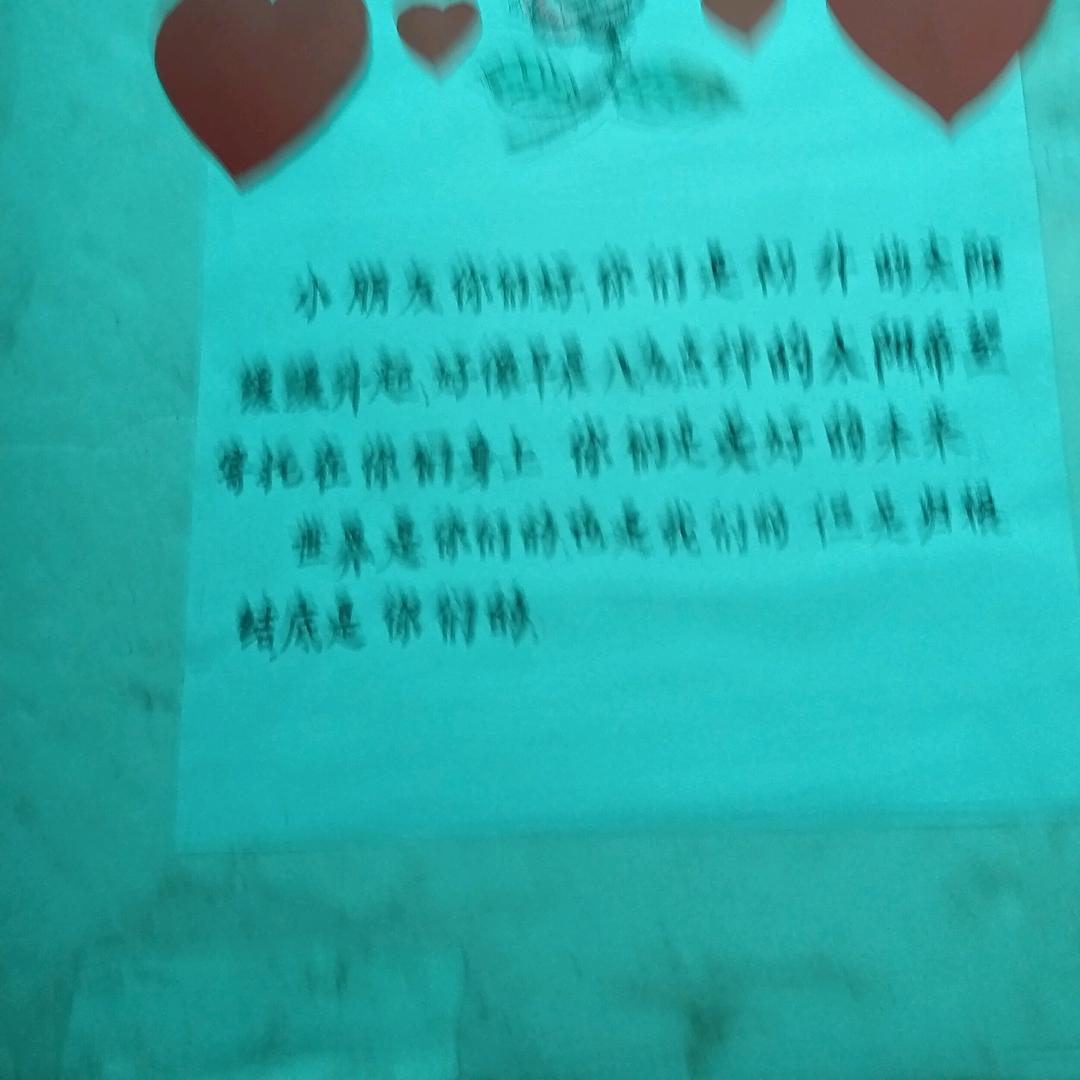 小朋友你们好,你们是初升的太阳
缓缓升起,好像早晨八九点钟的太阳希望
寄托在你们身上 你们是美好的未来
世界是你们的,也是我们的 但是归根
结底是你们的